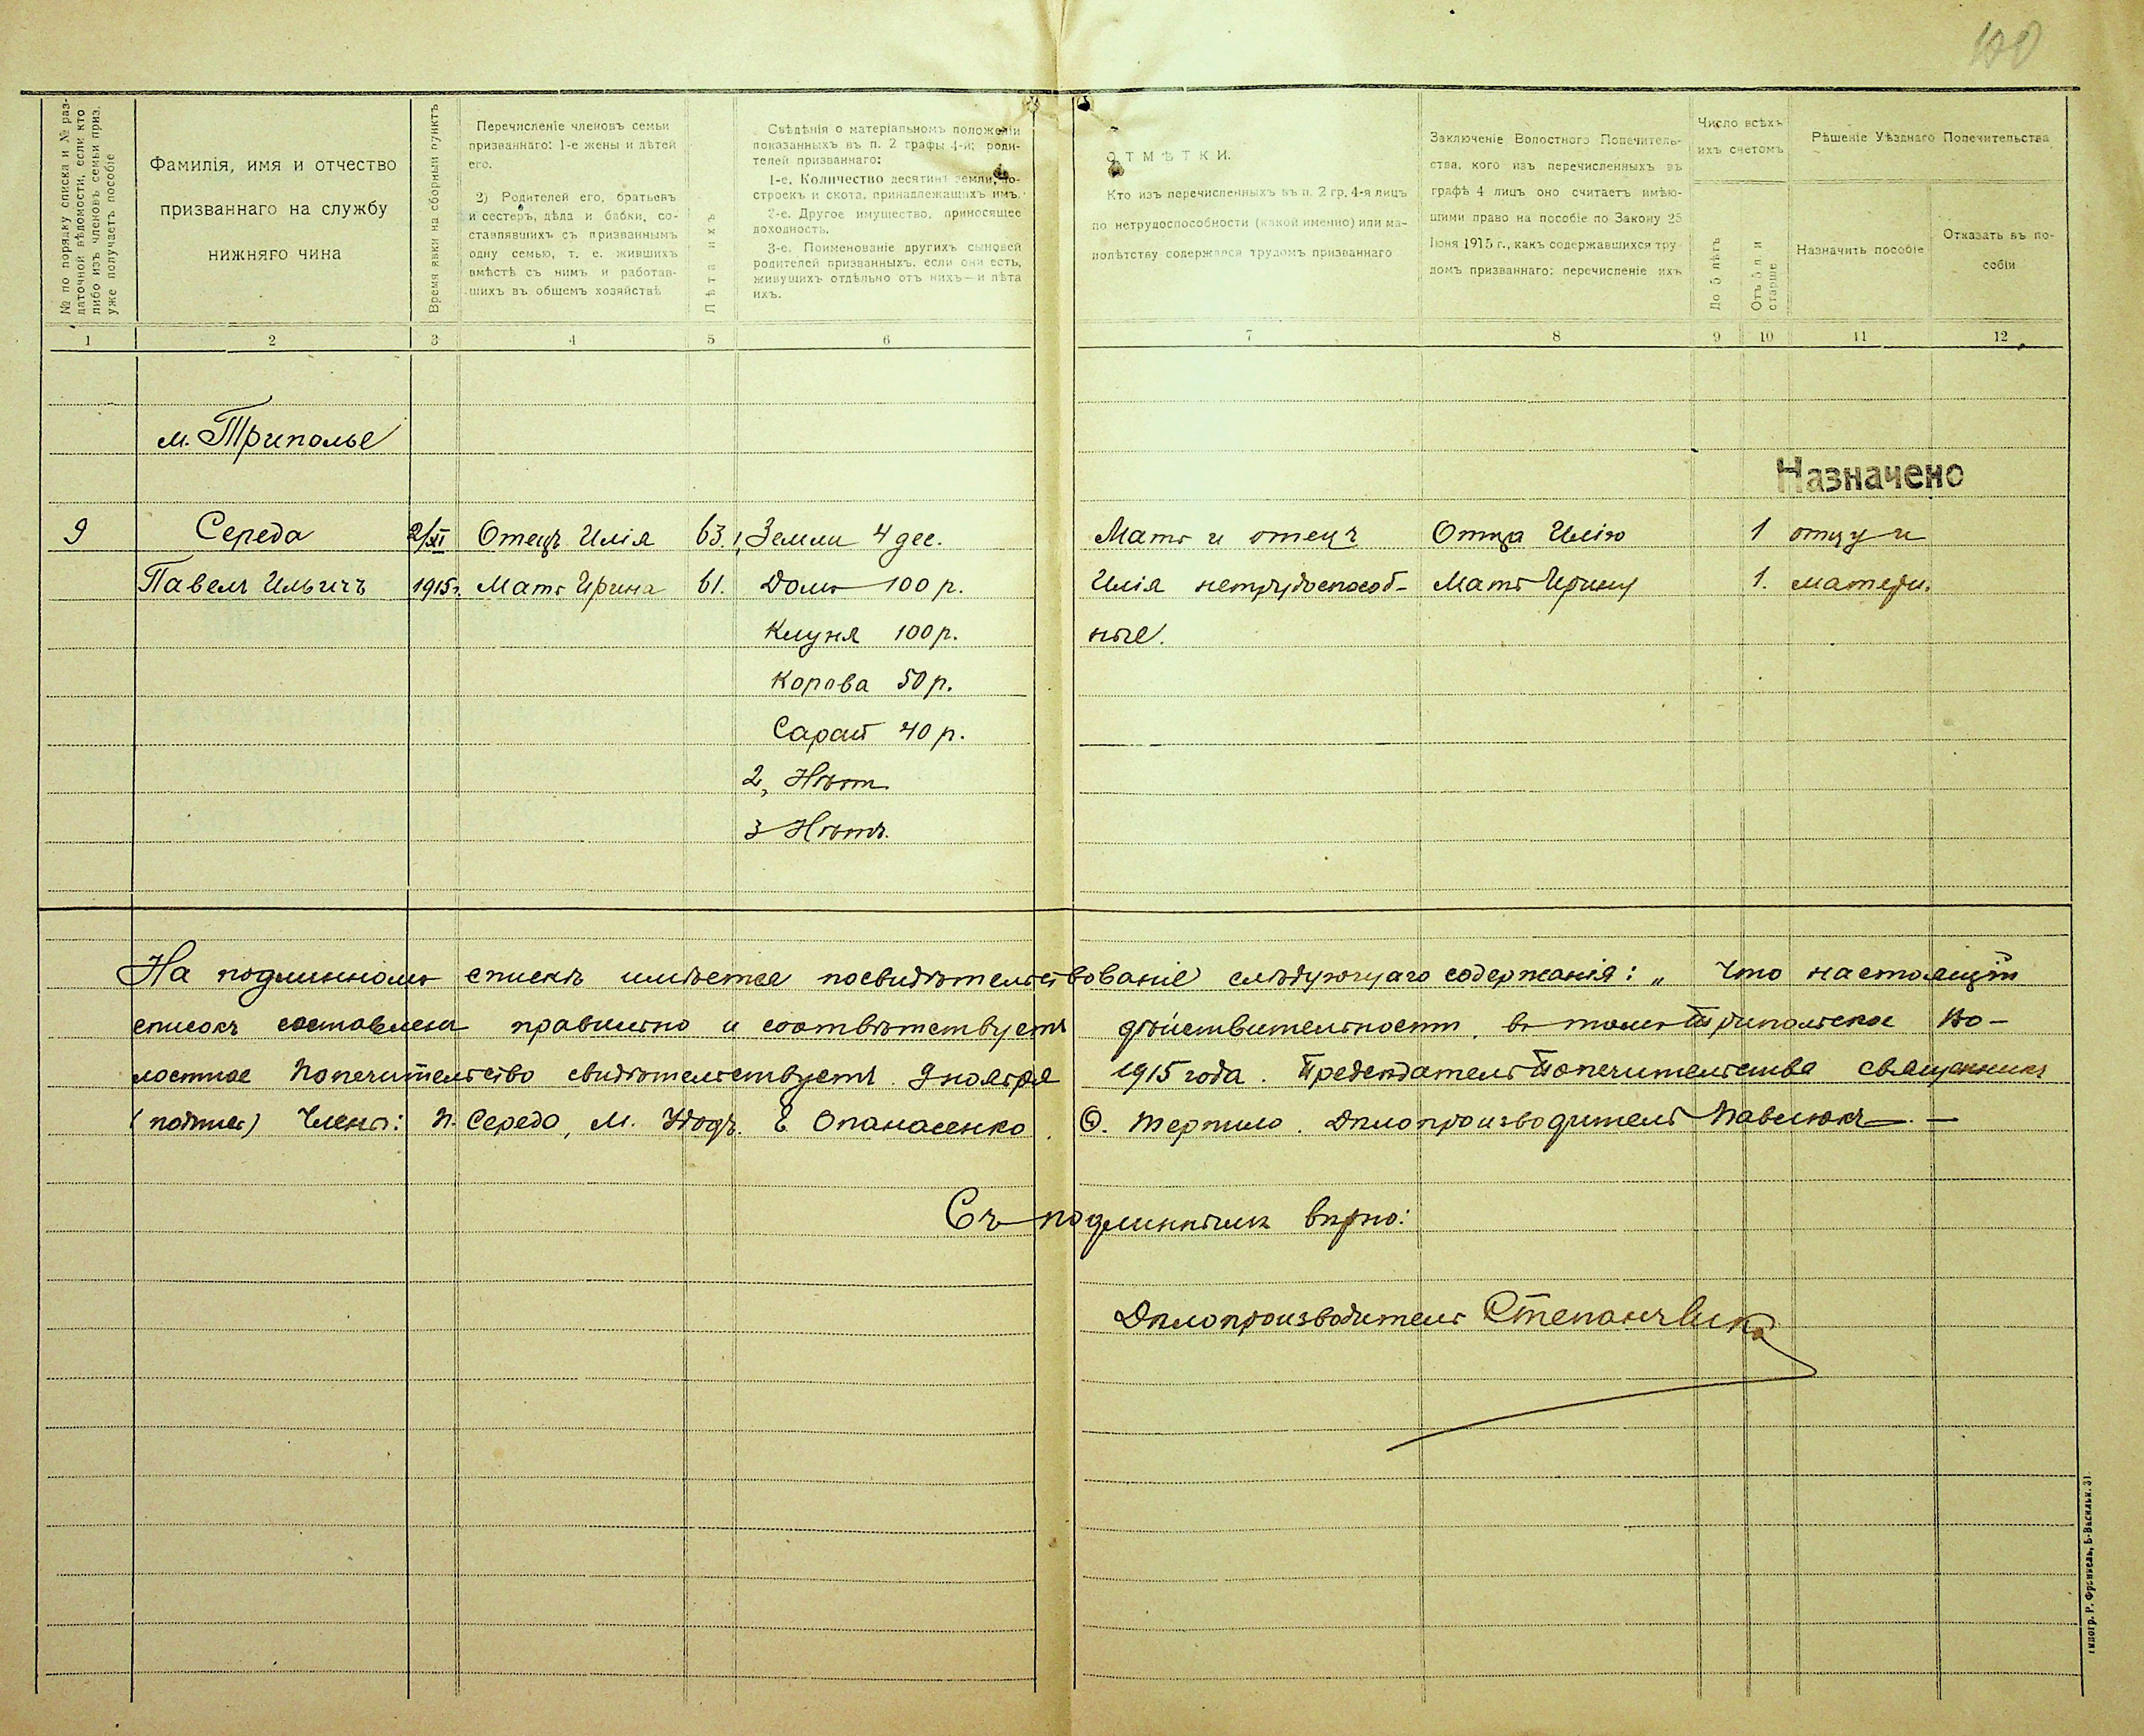 100
№ по порядку списка и № раз-
даточной вѣдомости, если кто
либо изъ членовъ семьи приз.
уже получаетъ пособіе
Фамилія, имя и отчество
призваннаго на службу
нижняго чина
Время явки на сборный пунктъ
Перечисленіе членовъ семьи
призваннаго: 1-е жены и дѣтей
его.
2) Родителей его, братьевъ
и сестеръ, дѣда и бабки, со-
ставлявшихъ съ призваннымъ
одну семью, т. е. жившихъ
вмѣстѣ съ нимъ и работав-
шихъ въ общемъ хозяйствѣ
Лѣта ихъ
Свѣдѣнія о матеріальномъ положеніи
показанныхъ въ п. 2 графы 4-й; роди-
телей призваннаго:
1-е. Количество десятинъ земли, по-
строекъ и скота, принадлежащихъ имъ.
2-е. Другое имущество, приносящее
доходность.
3-е. Поименованіе другихъ сыновей
родителей призванныхъ, если они есть,
живущихъ отдѣльно отъ нихъ—и лѣта
ихъ.
ОТМѢТКИ.
Кто изъ перечисленныхъ въ п. 2 гр. 4-я лицъ
по нетрудоспособности (какой именно) или ма-
лолѣтству содержался трудомъ призваннаго
Заключеніе Волостного Попечитель-
ства, кого изъ перечисленныхъ въ
графѣ 4 лицъ оно считаетъ имѣю-
щими право на пособіе по Закону 25
Іюня 1915 г., какъ содержавшихся тру-
домъ призваннаго: перечисленіе ихъ
Число всѣхъ
ихъ счетомъ
До 5 лѣтъ
Отъ 5 л. и
старше
Рѣшеніе Уѣзднаго Попечительства
Назначить пособіе
Отказать въ по-
собіи
1 2 3 4 5 6 7 8 9 10 11 12
м. Триполье
Назначено
9 Середа 2/XI Отецъ Илія 63. 1, Земли 4 дес. Мать и отецъ Отца Илію 1 отцу и
Павелъ Ильичъ 1915г. Мать Ирина 61. Домъ 100 р. Илія нетрудоспособ- Мать Ирину 1. матери.
Клуня 100 р. ные.
Корова 50 р.
Сарай 40 р.
2, Нѣт
3 Нѣтъ.
На подлинномъ спискѣ имѣется посвидѣтельствованіе слѣдующаго содержанія: „ Что настоящій
списокъ составленъ правильно и соотвѣтствуетъ дѣйствительности, въ томъ Трипольское Во-
лостное Попечительство свидѣтельствуетъ. 9 ноября 1915 года. Предсѣдатель Попечительства священникъ
(подпись) Члены: П. Середа, М. Удодъ. Е. Опанасенко. Ѳ. Терпило. Дѣлопроизводитель Павлюкъ —
Съ подлиннымъ вѣрно:
Дѣлопроизводитель
типогр. Р. Френкель, Б-Васильк. 31.